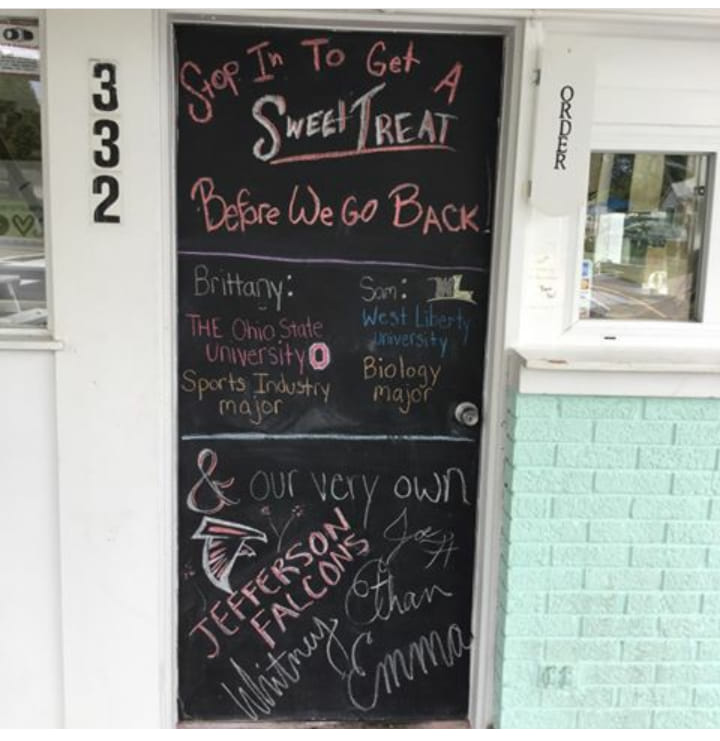 332
Stop In To Get A
SWEET TREAT
Before We Go BACK!
Brittany:
THE Ohio State
University O
Sports Industry
major
Sam: WL
West Liberty
University
Biology
major
& our very own
JEFFERSON
FALCONS
Ethan
Whitney
Emma
ORDER